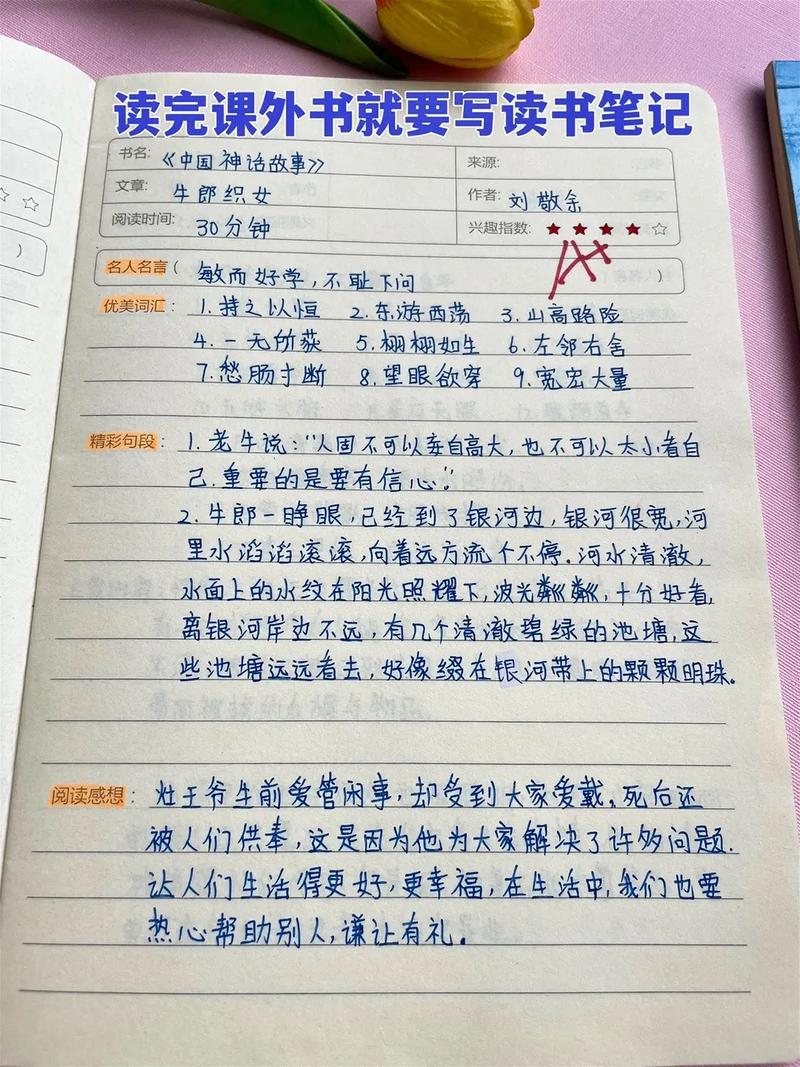 读完课外书就要写读书笔记
书名: 《中国神话故事》 来源:
文章: 牛郎织女 作者: 刘敬余
阅读时间: 30分钟 兴趣指数: ★★★★☆
A+
名人名言( 敏而好学，不耻下问 )
优美词汇: 1.持之以恒 2.东游西荡 3.山高路险
4.一无所获 5.栩栩如生 6.左邻右舍
7.愁肠寸断 8.望眼欲穿 9.宽宏大量
精彩句段: 1.老牛说:"人固不可以妄自高大，也不可以太小看自
己.重要的是要有信心."
2.牛郎一睁眼,已经到了银河边,银河很宽,河
里水滔滔滚滚,向着远方流个不停.河水清澈,
水面上的水纹在阳光照耀下,波光粼粼,十分好看,
离银河岸边不远,有几个清澈碧绿的池塘,这
些池塘远远看去,好像缀在银河带上的颗颗明珠。
阅读感想: 灶王爷生前爱管闲事,却受到大家爱戴,死后还
被人们供奉,这是因为他为大家解决了许多问题.
让人们生活得更好,更幸福,在生活中,我们也要
热心帮助别人,谦让有礼。